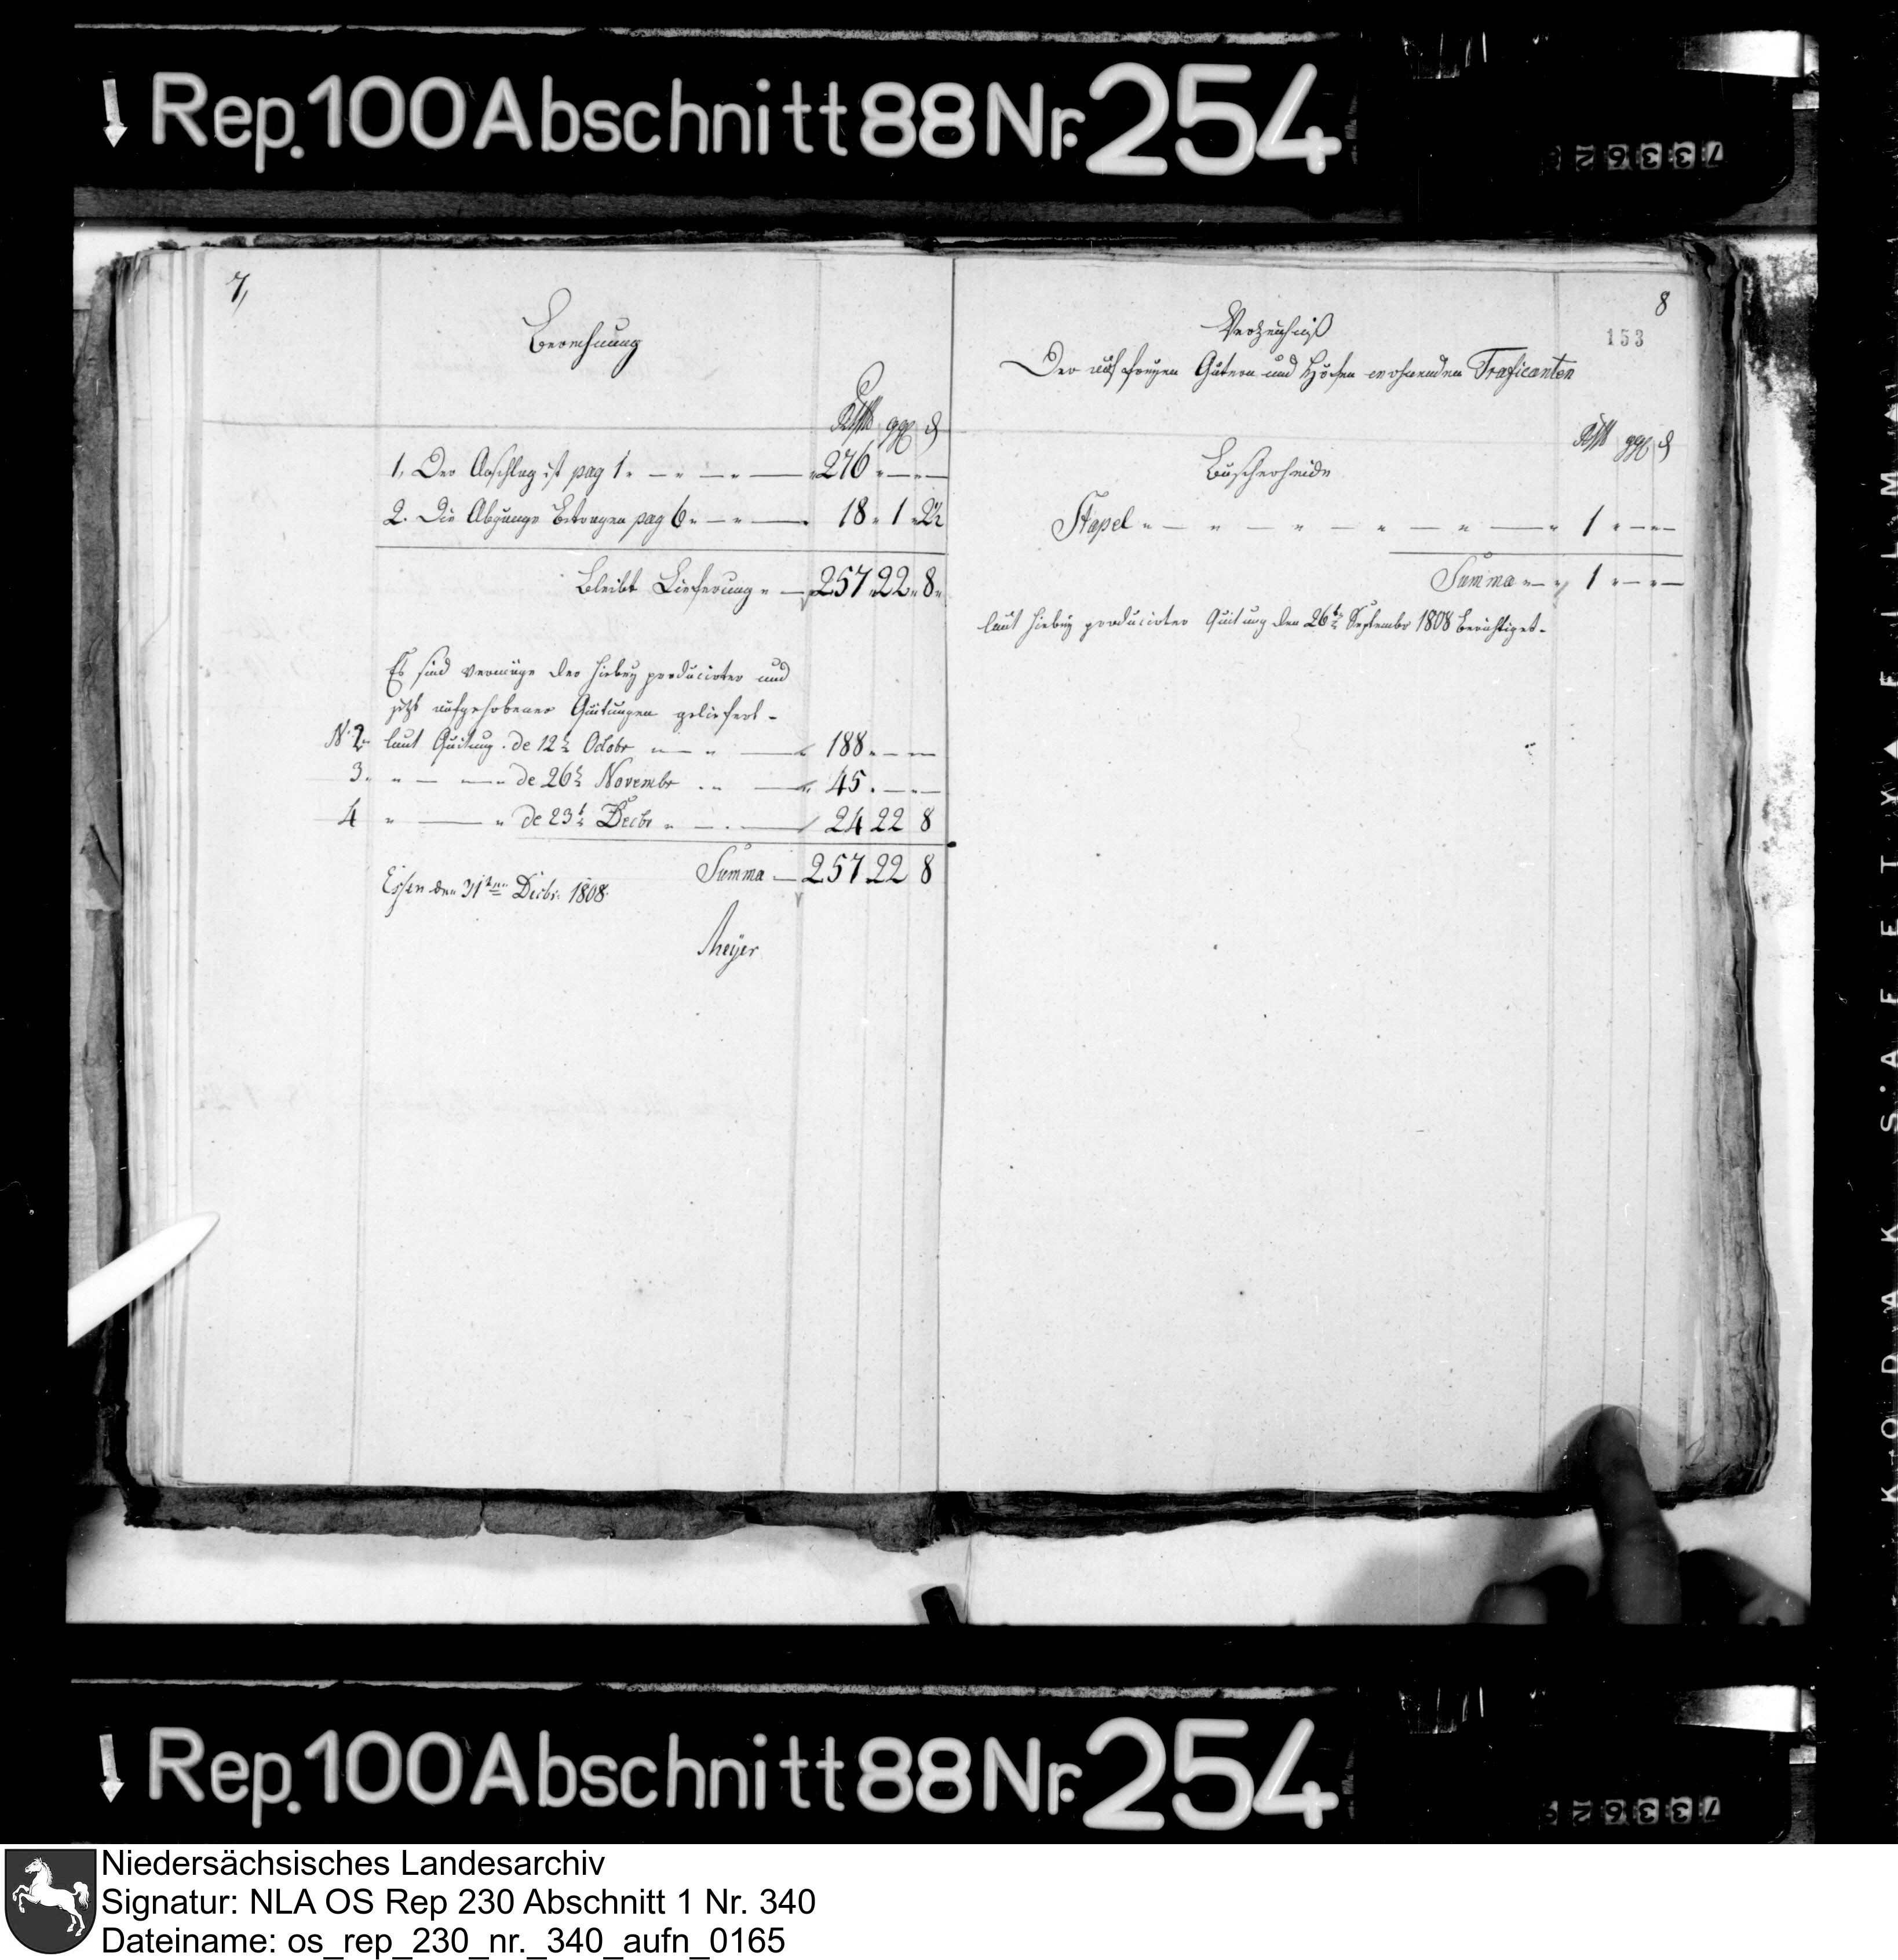 Rep. 100 Abschnitt 88 Nr. 254
7,
Berechnung
Rthlr ggr d
1. Der Anschlag ist pag 1. 276
2. Die Abgänge Betragen pag 6. 18 1 2½
Bleibt Lieferung 257 22 8
Es sind vermöge der hiebey producirter und
jetzt aufgehobener Quitungen geliefert
N. 2 laut Quitung de 12t Octobr 188
3. de 26t Novembr 45
4 de 23t Decbr 24 22 8
Summa 257 22 8
Essen den 31ten Decbr: 1808
Meyer
8
153
Verzeichniß
Der auf freyen Gütern und Höfen wohnenden Traficanten
Rthlr ggr d
Buscherheide
Stapel 1
Summa 1
laut hiebey producirter Quitung den 26t Septembr 1808 berichtiget
KODAK SAFETY FILM
Rep. 100 Abschnitt 88 Nr. 254
Niedersächsisches Landesarchiv
Signatur: NLA OS Rep 230 Abschnitt 1 Nr. 340
Dateiname: os_rep_230_nr._340_aufn_0165